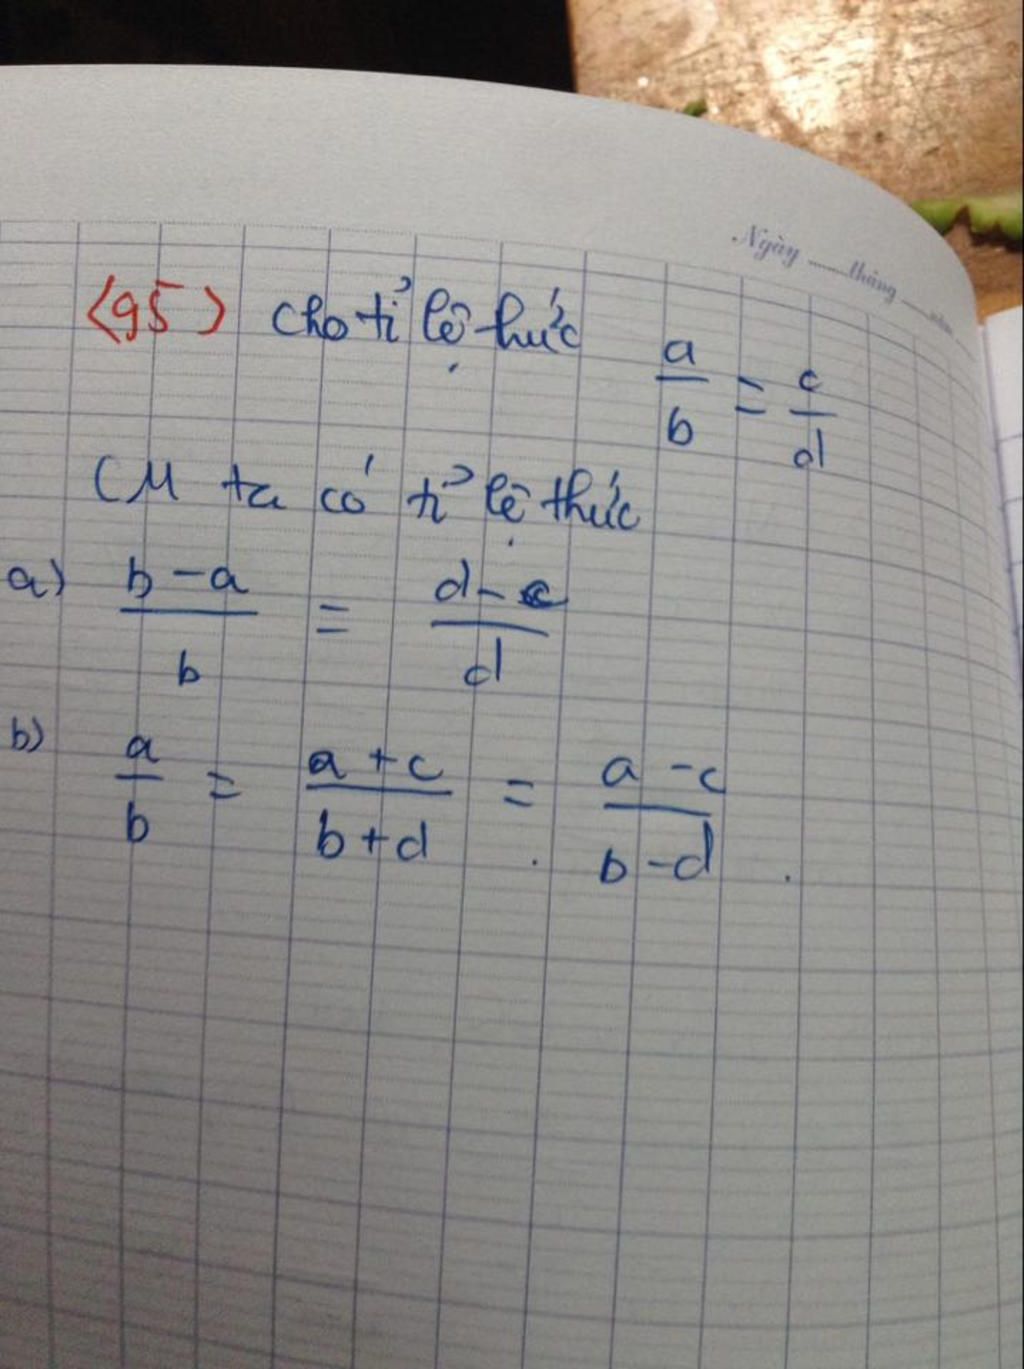 Ngày ... tháng ... năm
<95> Cho tỉ lệ thức a/b = c/d
CM ta có tỉ lệ thức
a) b - a / b = d - c / d
b) a/b = a + c / b + d = a - c / b - d .